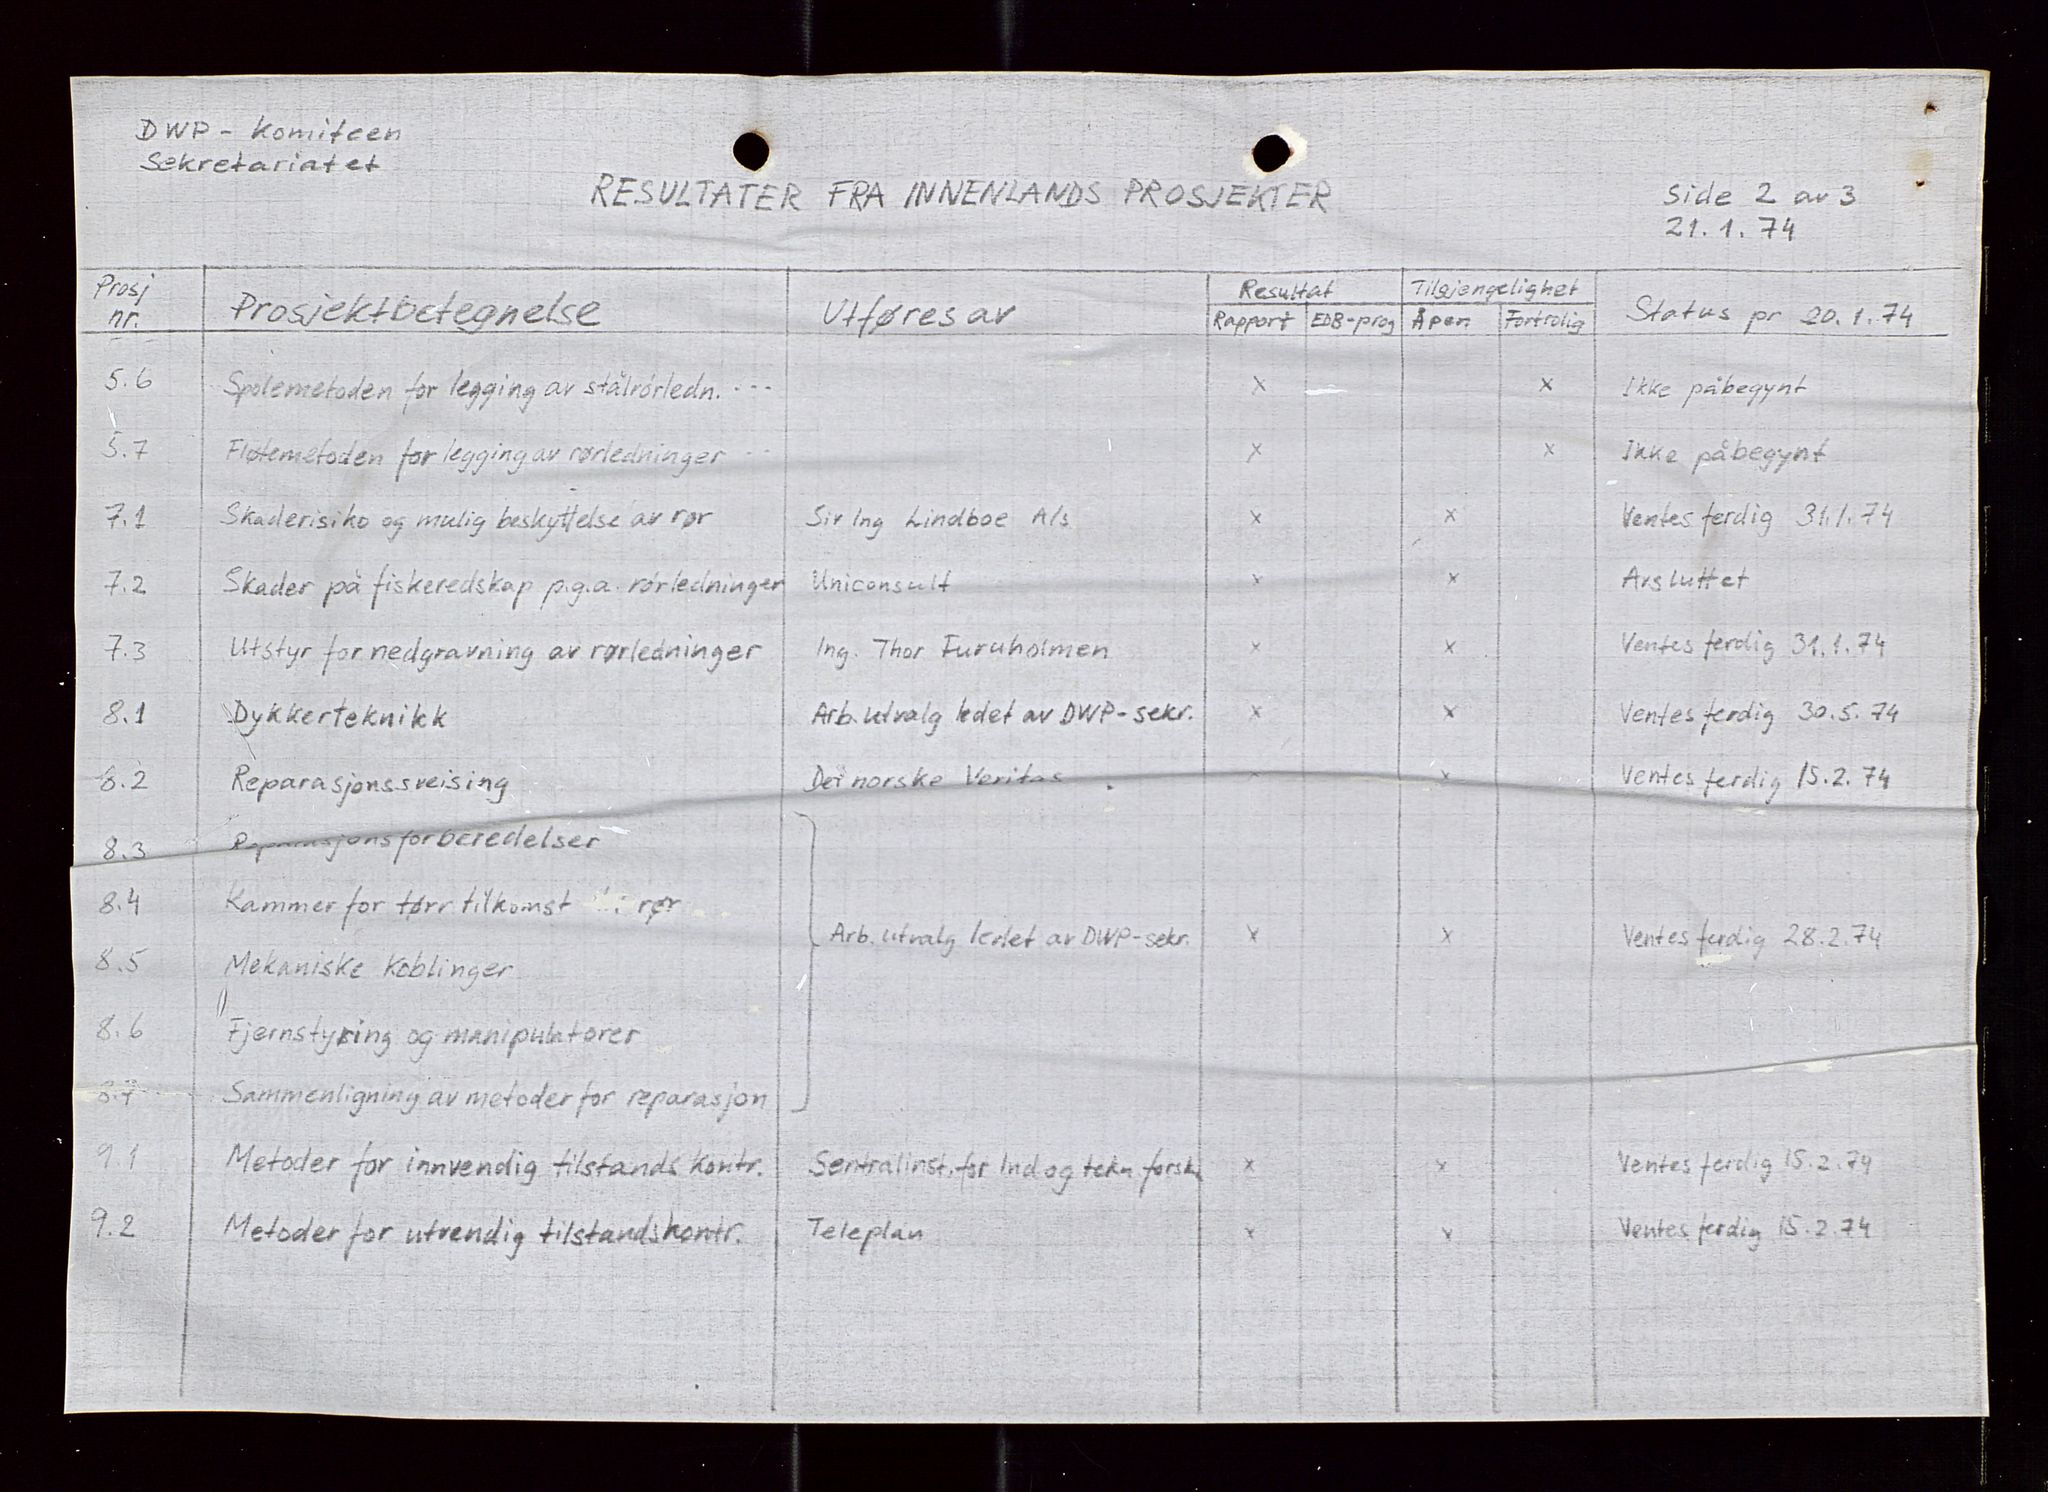 DWP - Komiteen
Sekretariatet
RESULTATER FRA INNENLANDS PROSJEKTER
Side 2 av 3
21.1.74
Prosj nr. Prosjektbetegnelse Utføres av Resultat Tilgjengelighet Status pr 20.1.74
Rapport EDB-prog Åpen Fortrolig
5.6 Spolemetoden for legging av stålrørledn. ... x x Ikke påbegynt
5.7 Fløtemetoden for legging av rørledninger ... x x Ikke påbegynt
7.1 Skaderisiko og mulig beskyttelse av rør Siv Ing Lindboe A/s x x Ventes ferdig 31.1.74
7.2 Skader på fiskeredskap p.g.a. rørledninger Uniconsult x x Avsluttet
7.3 Utstyr for nedgravning av rørledninger Ing. Thor Furuholmen x x Ventes ferdig 31.1.74
8.1 Dykkerteknikk Arb. utvalg ledet av DWP-sekr. x x Ventes ferdig 30.5.74
8.2 Reparasjonssveising Det norske Veritas x x Ventes ferdig 15.2.74
8.3 Reparasjonsforberedelser
8.4 Kammer for tørr tilkomst rør
Arb. utvalg ledet av DWP-sekr. x x Ventes ferdig 28.2.74
8.5 Mekaniske koblinger
8.6 Fjernstyring og manipulatorer
8.7 Sammenligning av metoder for reparasjon
9.1 Metoder for innvendig tilstands kontr. Sentralinst. for Ind og tekn forskn x x Ventes ferdig 15.2.74
9.2 Metoder for utvendig tilstandskontr. Teleplan x x Ventes ferdig 15.2.74